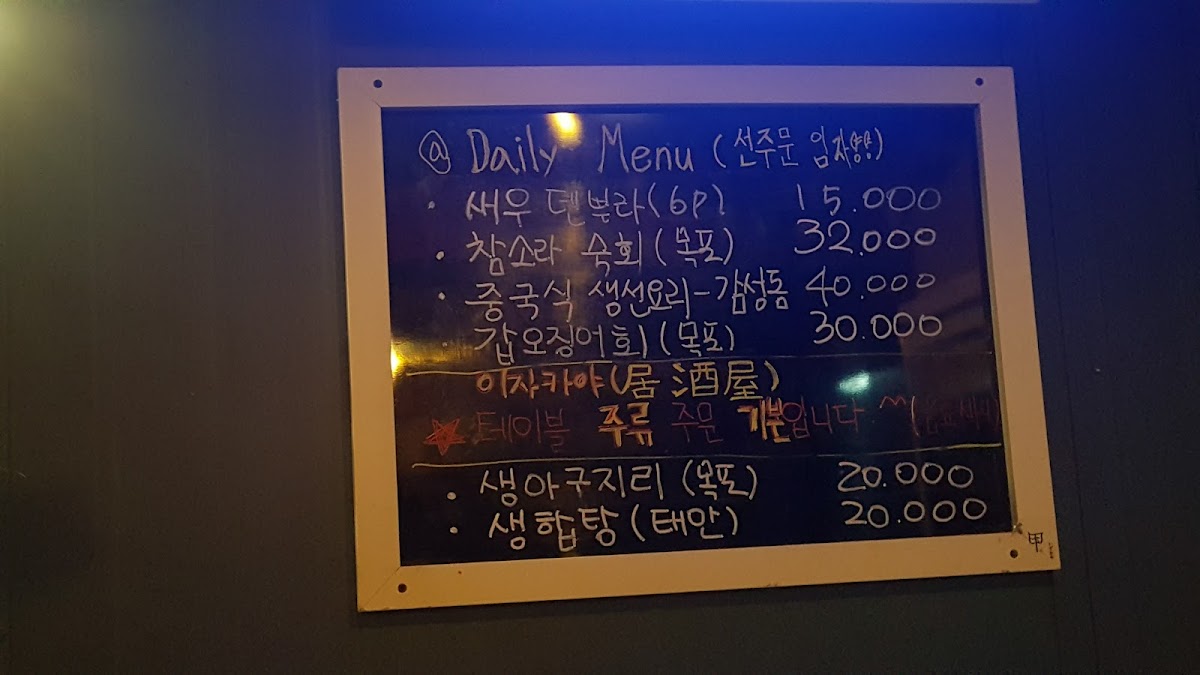 @ Daily Menu (선주문 임자)
· 새우 덴뿌라(6P) 15.000
· 참소라 숙회 (목포) 32.000
· 중국식 생선요리-감성돔 40.000
· 갑오징어회 (목포) 30.000
이자카야(居酒屋)
★ 테이블 주류 주문 기본입니다 ^^
· 생아구지리 (목포) 20.000
· 생합탕 (태안) 20.000
甲